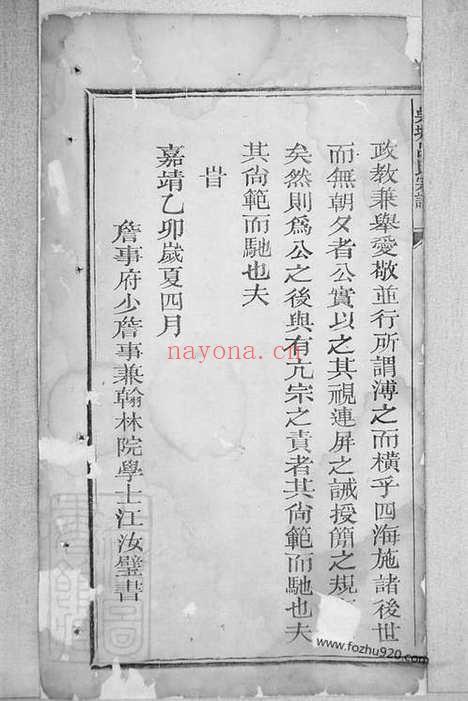 政教兼舉愛敬並行所謂溥之而橫乎四海施諸後世
而無朝夕者公實以之其視連屏之誡授簡之規
矣然則爲公之後與有亢宗之責者其尙範而馳也夫
其尙範而馳也夫
旹
嘉靖乙卯歲夏四月
詹事府少詹事兼翰林院學士江汝璧書
nayona.cn
www.fozhu920.com